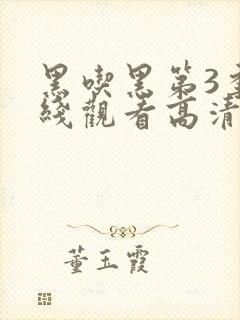 黑喫黑第3季
綫觀看高清
董玉霞